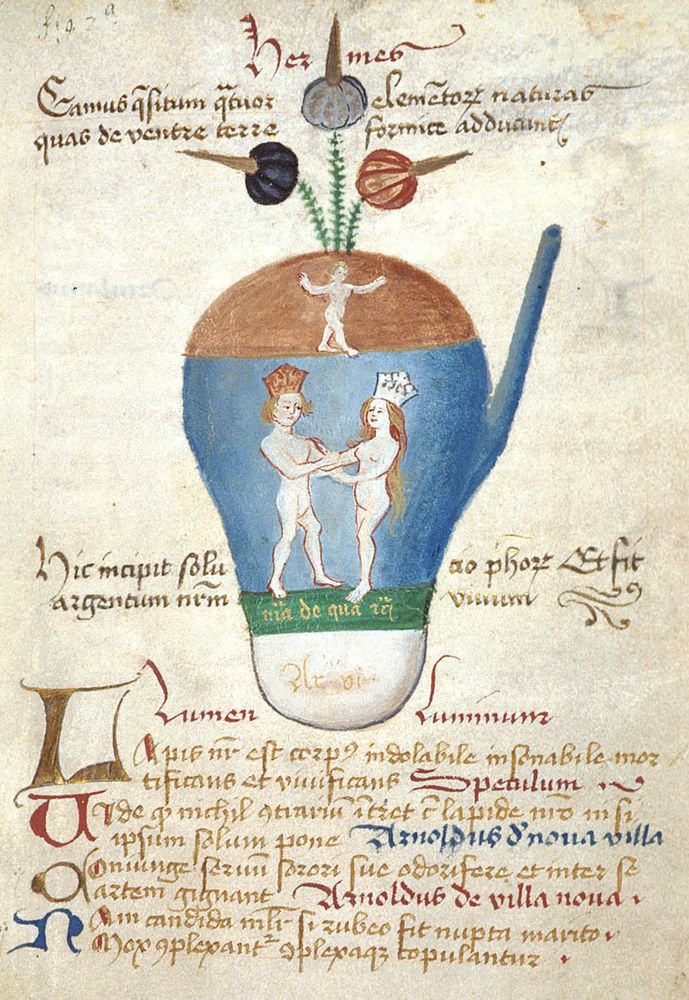 Hermes
Eamus q̄situm q̄tuor elemētoꝝ naturas
quas de ventre terre formice adducunt
Hic incipit solucio ph̄oꝝ Et fit
argentum nr̄m vivum
mā de qua
Ar vi
Lumen Luminum
Lapis nr̄ est corpꝰ indolabile insonabile mor
tificans et vivificans Speculum
Vide qꝫ nichil ꝯtrariū īt̄ret c̄ lapide nr̄o nisi
ipsum solum pone Arnoldus d' nova villa
Coniunge servū sorori sue odorifere et inter se
artem gignant Arnoldus de villa nova
Nam candida ml̄r si rubeo fit nupta marito
Mox ꝯplexant̄ ꝯplexaqꝫ copulantur